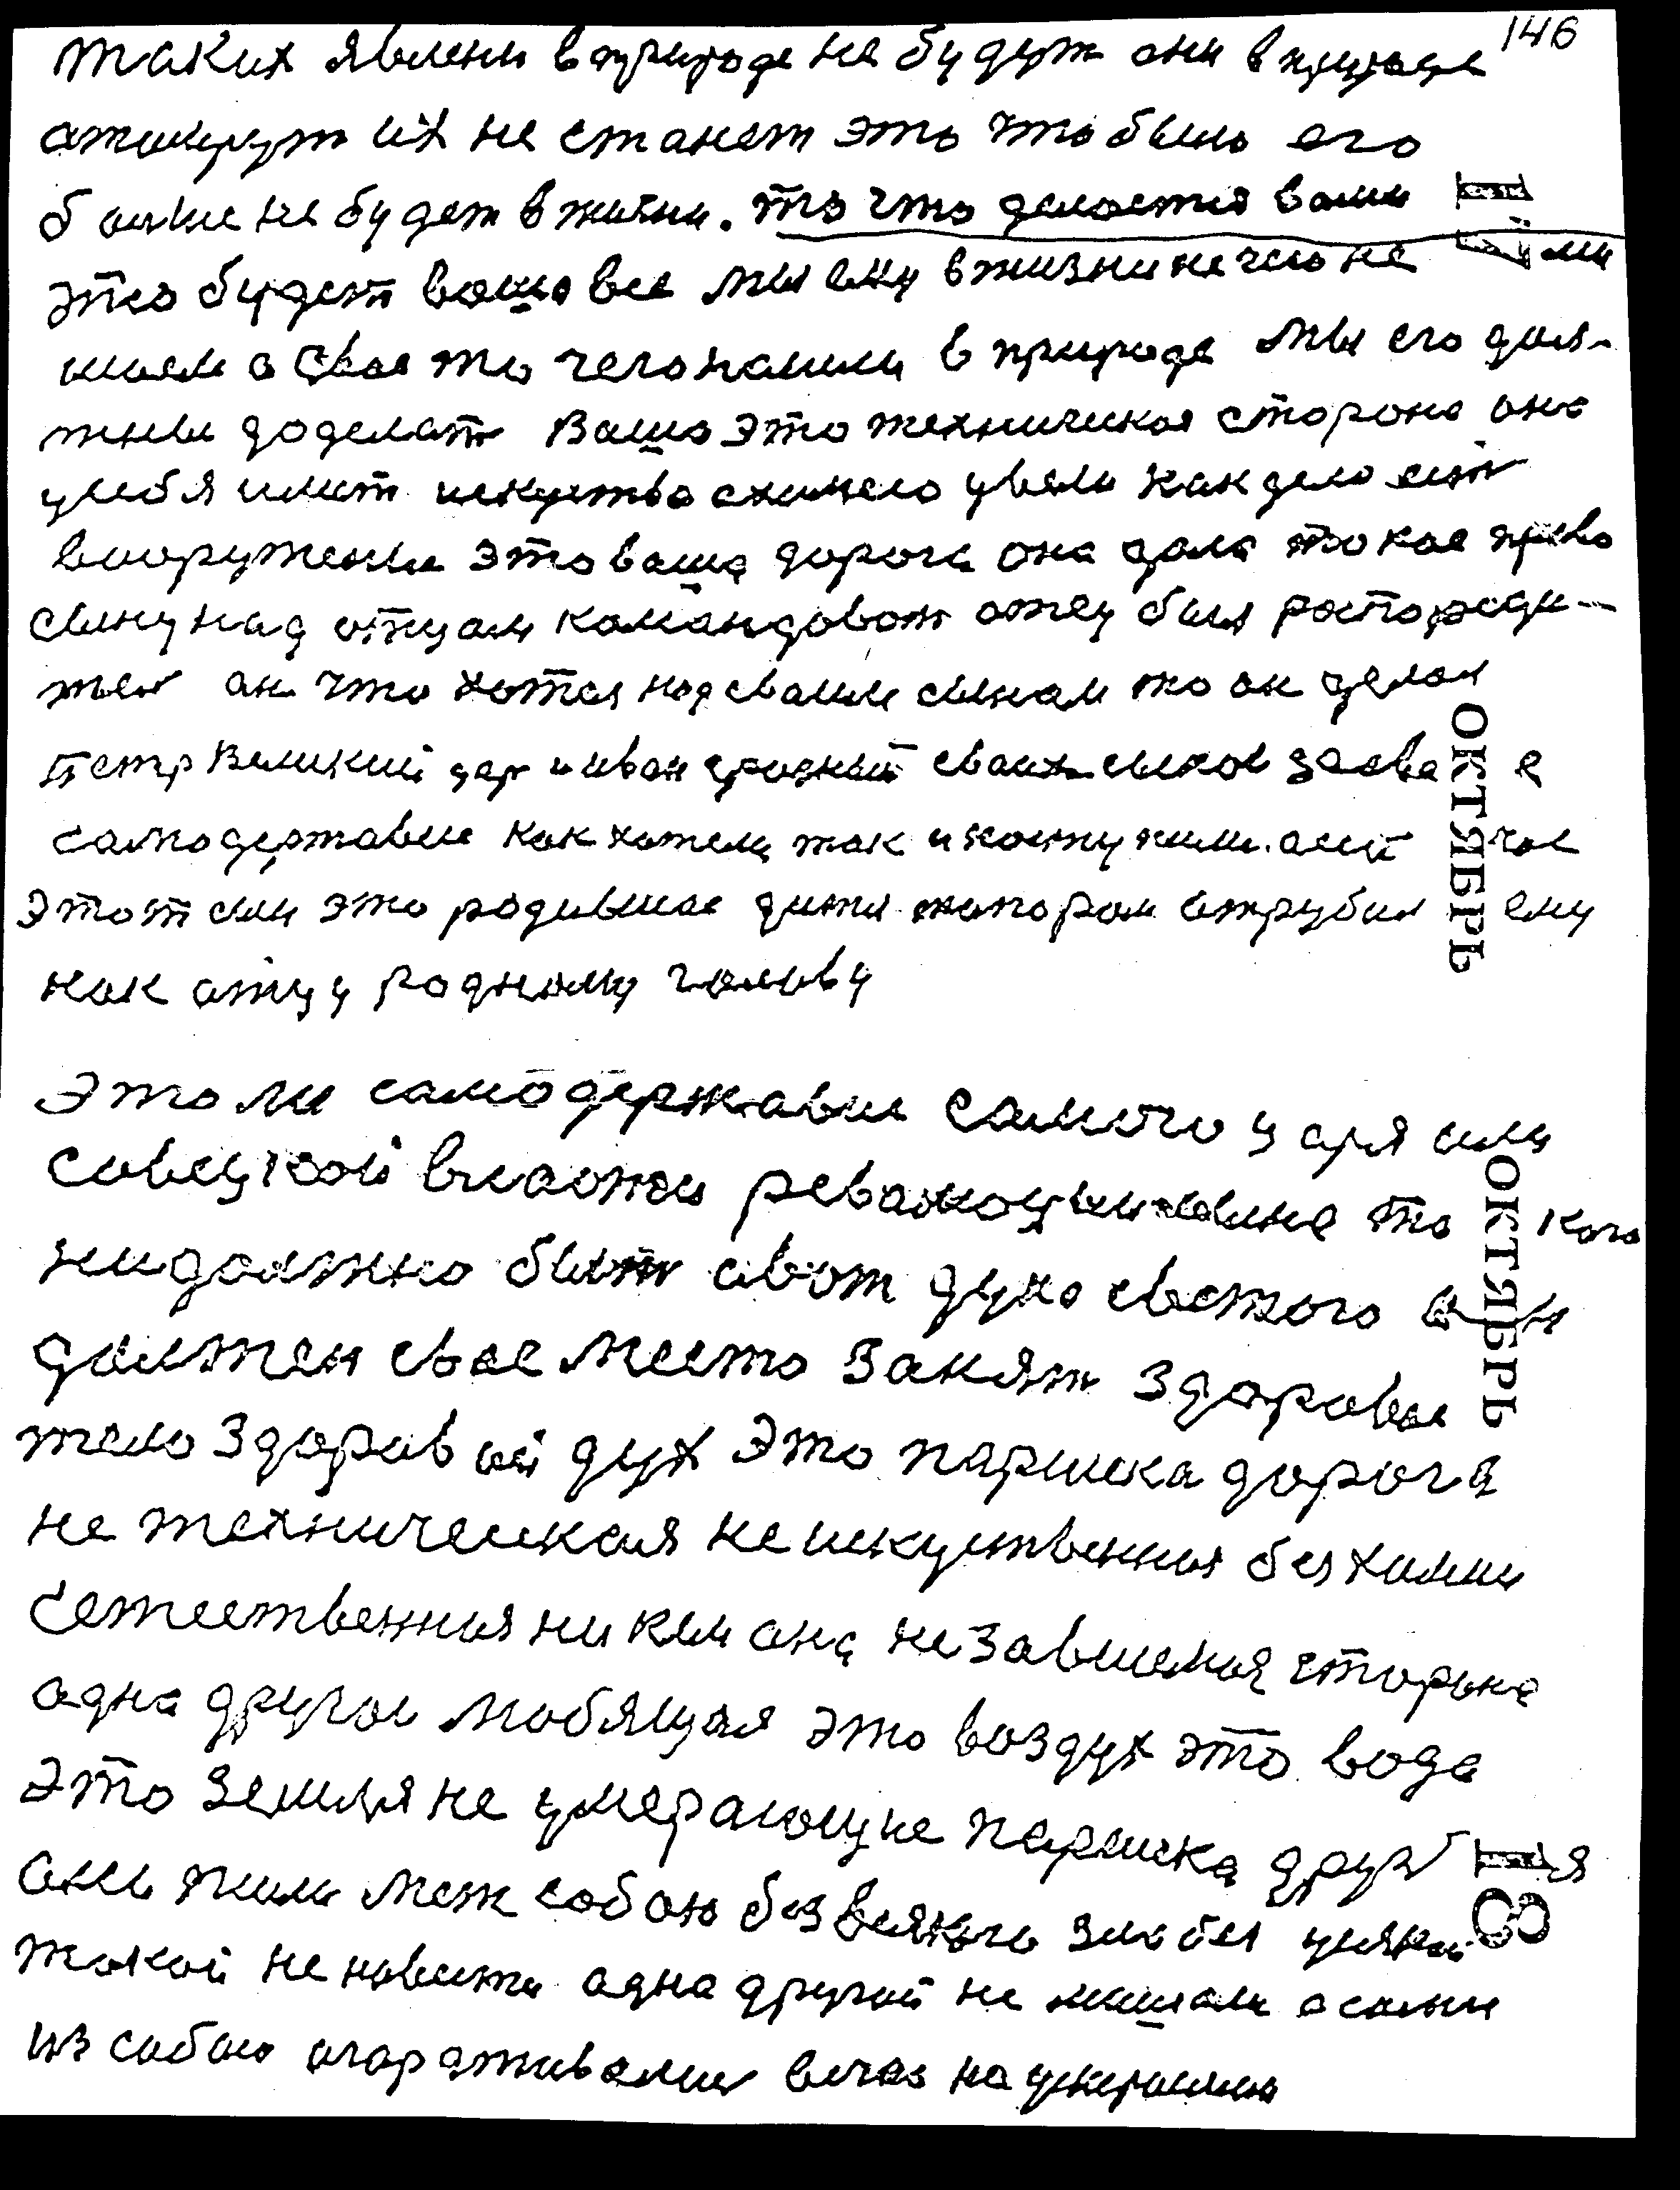 146
таких явлени в природе не будут они в природе
атамрут их не станет это что было его
болше не будет в жизни. то что делоется вами
это будет вашо все мы ему в жизни нечего не
мы его дол-
жны доделат Вашо это техническоя сторона она
у себя имеет искуство
вооружены это ваша дорога она дала токое право
сыну над отцам командоват отец был роспореди-
тел он что хотел над сваим сынам то он делал
петр Великий цар и иван грозный сваих сынов за сва е
самодержавие как хотели так и
этот сын это родившое дитя топорам отрубил ему
как отцу родному голову
Это ли самодержавие самого царя или
совецкой власти революционына то кого
ни должно быт а вот духа светого он
должен свае место занят здоровое
тело здоровой дух это паршека дорога
не техническая не искуственная без химии
естественная ни кем она не зависимоя сторона
одна другое любящая это воздух это вода
это земля не умерающие паршека друз я
ани жили меж собою без всякого зла без усякой
такой ненависти одна другой не мишали а сами
из собою агараживалис
ОКТЯБРЬ
ОКТЯБРЬ
13